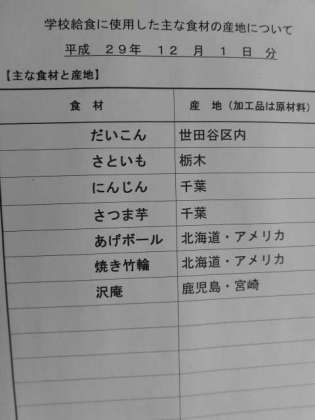 学校給食に使用した主な食材の産地について
平成 29年 12 月 1 日 分
【主な食材と産地】
食 材 産 地（加工品は原材料）
だいこん 世田谷区内
さといも 栃木
にんじん 千葉
さつま芋 千葉
あげボール 北海道・アメリカ
焼き竹輪 北海道・アメリカ
沢庵 鹿児島・宮崎